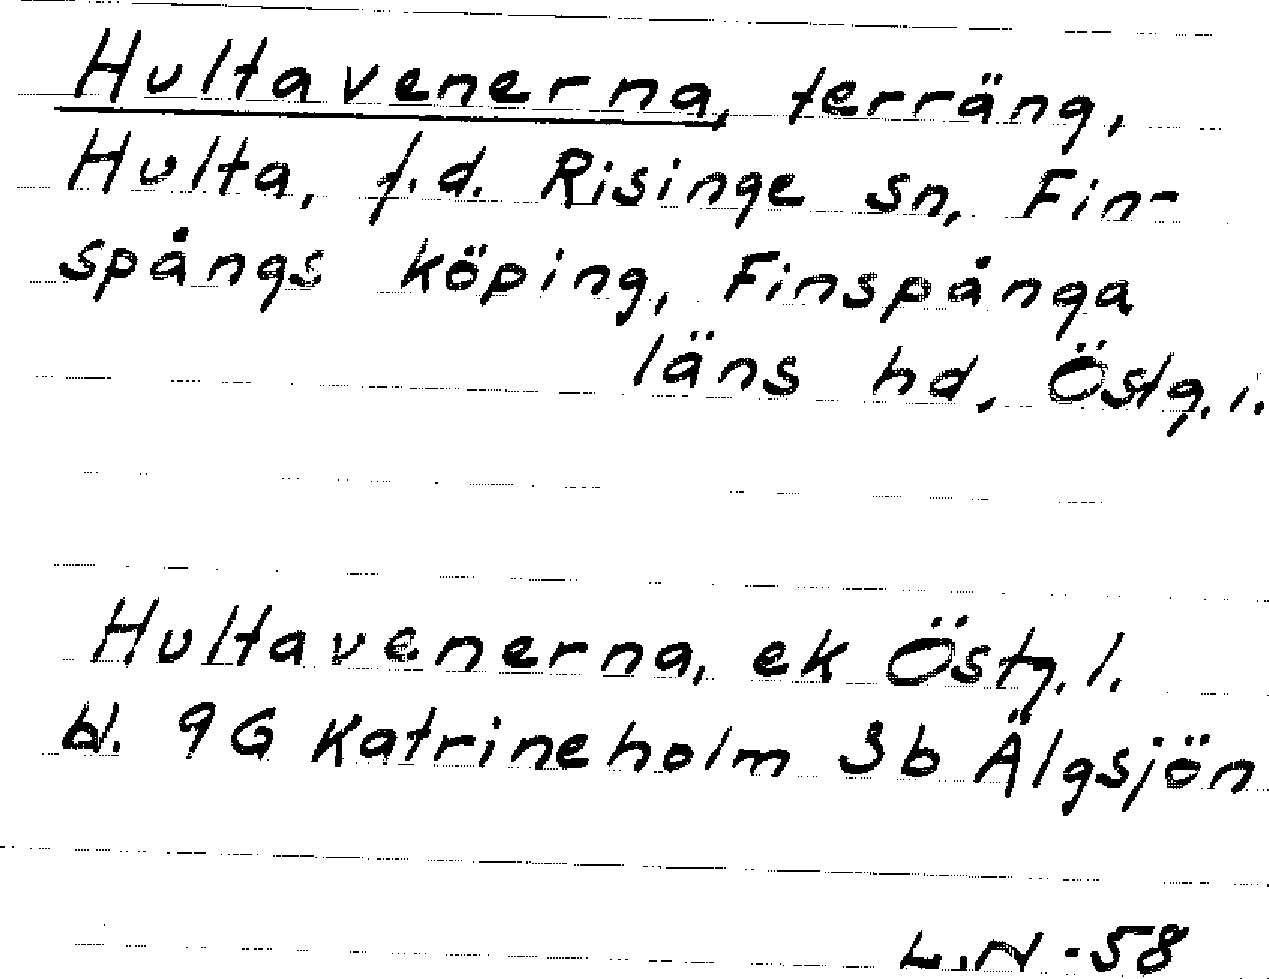 Hultavenerna, terräng,
Hulta, f.d. Risinge sn, Fin-
spångs köping, Finspånga
läns hd, Östg. l.
Hultavenerna, ek Östg. l.
bl. 9G Katrineholm 3b Älgsjön
L.N -58